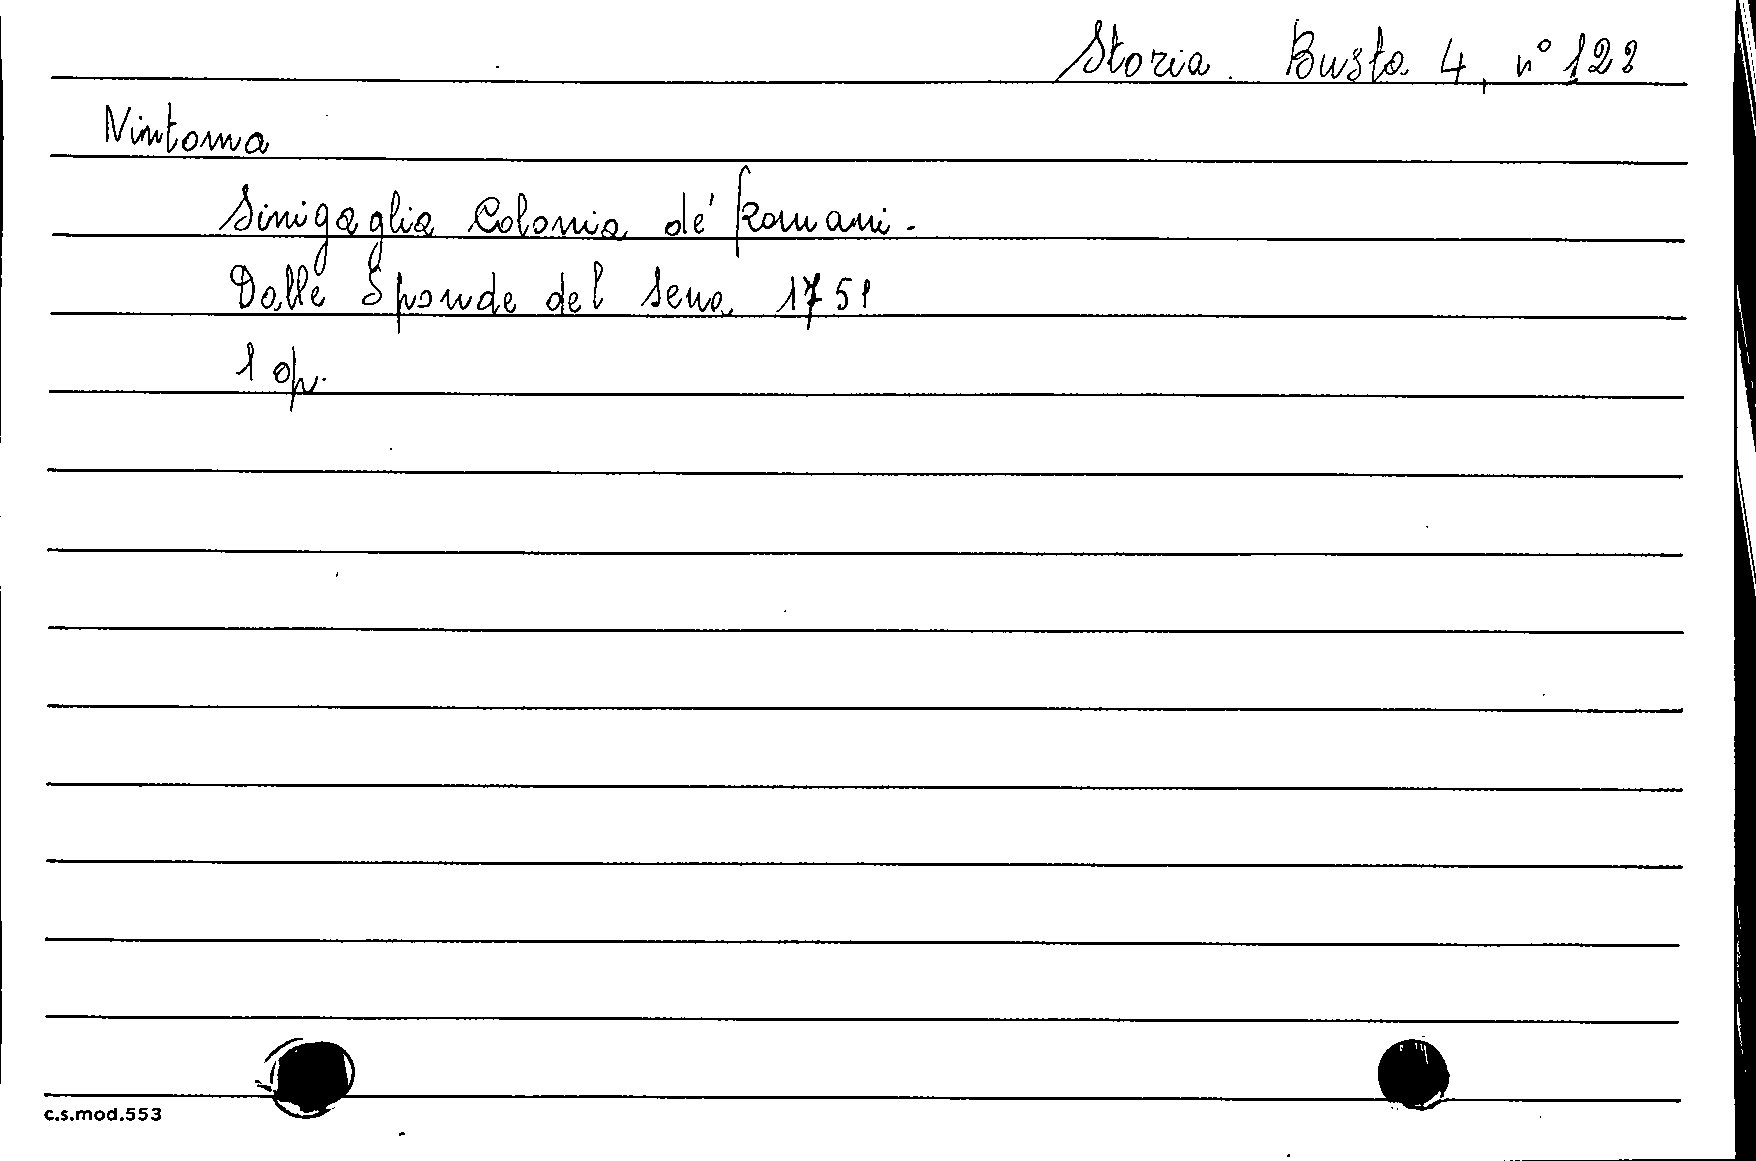 Storia. Busta 4, n° 122
Nintoma
Sinigaglia Colonia dé Romani.
Dalle Sponde del Sena 1751
1 op.
c.s.mod.553